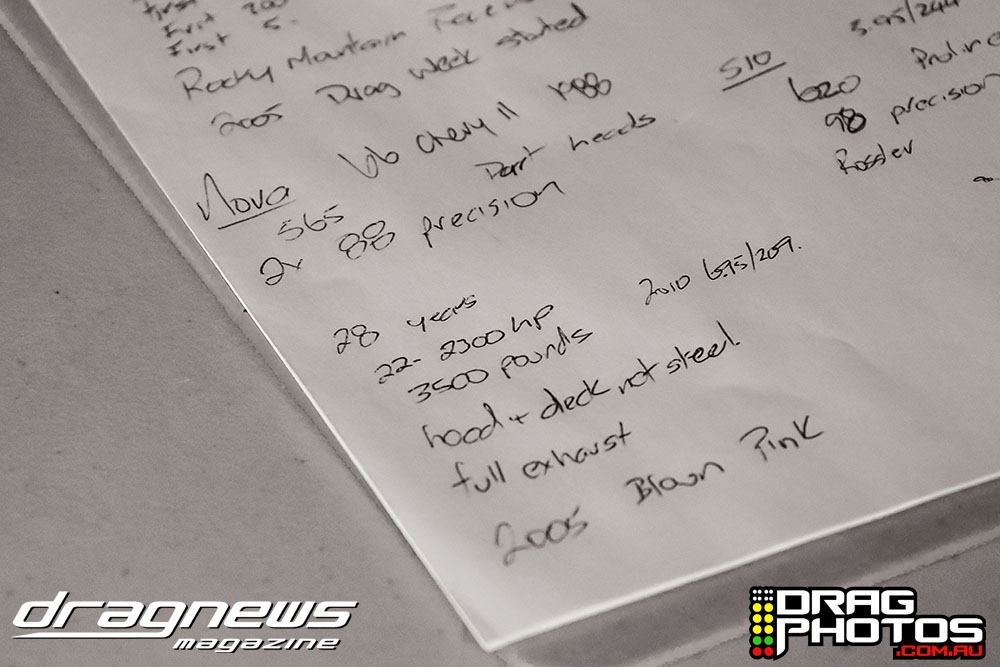 First
First 200
First 5.
Rocky Mountain Race
2005 Drag Week started
Nova bb chevy II 1988
565 Dart heads
2x 88 precision
28 years
22-2300 hp
3500 pounds 2010 6.95/209.
hood + deck not steel.
full exhaust
2005 Blown Pink
3.95/244
S10 620 Proline
98 precision
Rossler
dragnews
magazine
DRAG
PHOTOS
.COM.AU